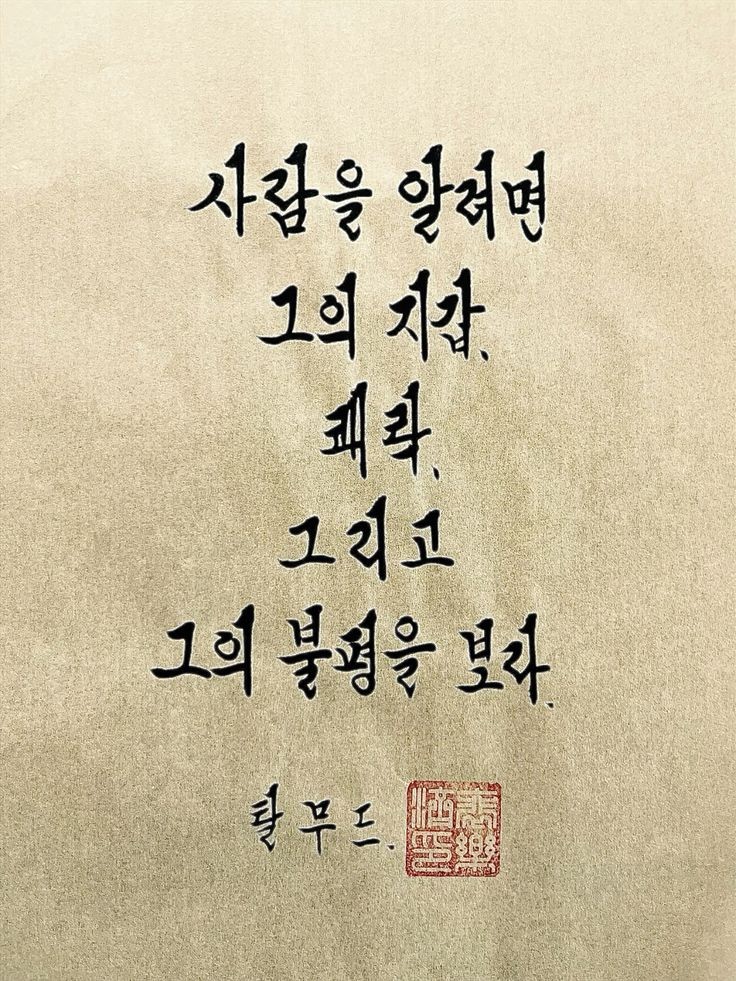 사람을 알려면
그의 지갑,
쾌락,
그리고
그의 불평을 보라.
탈무드.